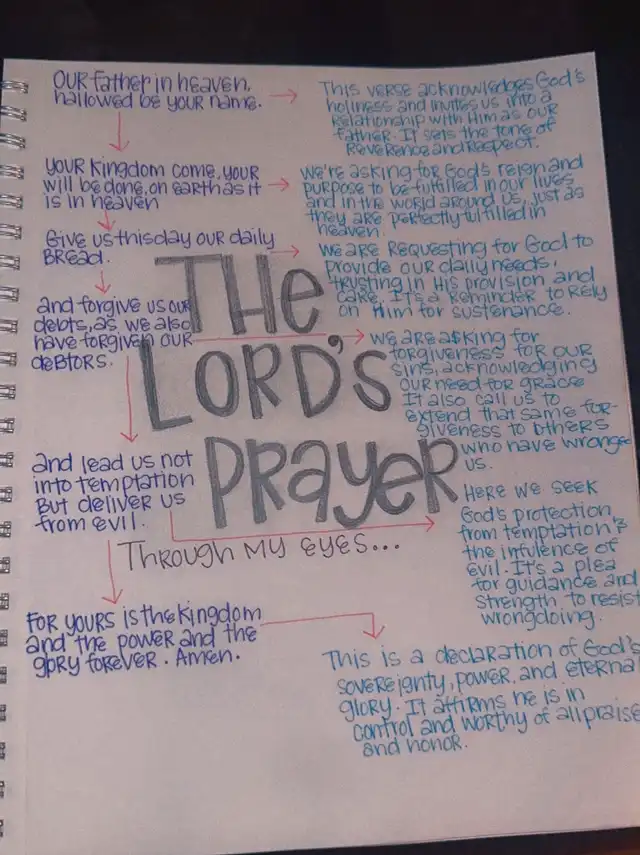 Our father in heaven,
hallowed be your name.
This verse acknowledges God's
holiness and invites us into a
relationship with Him as our
father. It sets the tone of
Reverence and respect.
Your Kingdom come, your
will be done, on earth as it
is in heaven
We're asking for God's reign and
purpose to be fulfilled in our lives
and in the world around us, just as
they are perfectly fulfilled in
heaven.
Give us this day our daily
Bread.
We are requesting for God to
provide our daily needs,
trusting in His provision and
care. It's a reminder to rely
on Him for sustenance.
and forgive us our
debts, as we also
have forgiven our
debtors.
we are asking for
forgiveness for our
sins, acknowledging
our need for grace
It also call us to
extend that same for-
giveness to others
who have wronge
us.
THE
LORD'S
PRAYER
Through my eyes...
and lead us not
into temptation
But deliver us
from evil.
Here we seek
God's protection
from temptation &
the infulence of
evil. It's a plea
for guidance and
strength to resist
wrongdoing.
For yours is the kingdom
and the power and the
glory forever. Amen.
This is a declaration of God's
sovereignty, power, and eterna
glory. It affirms he is in
control and worthy of all praise
and honor.